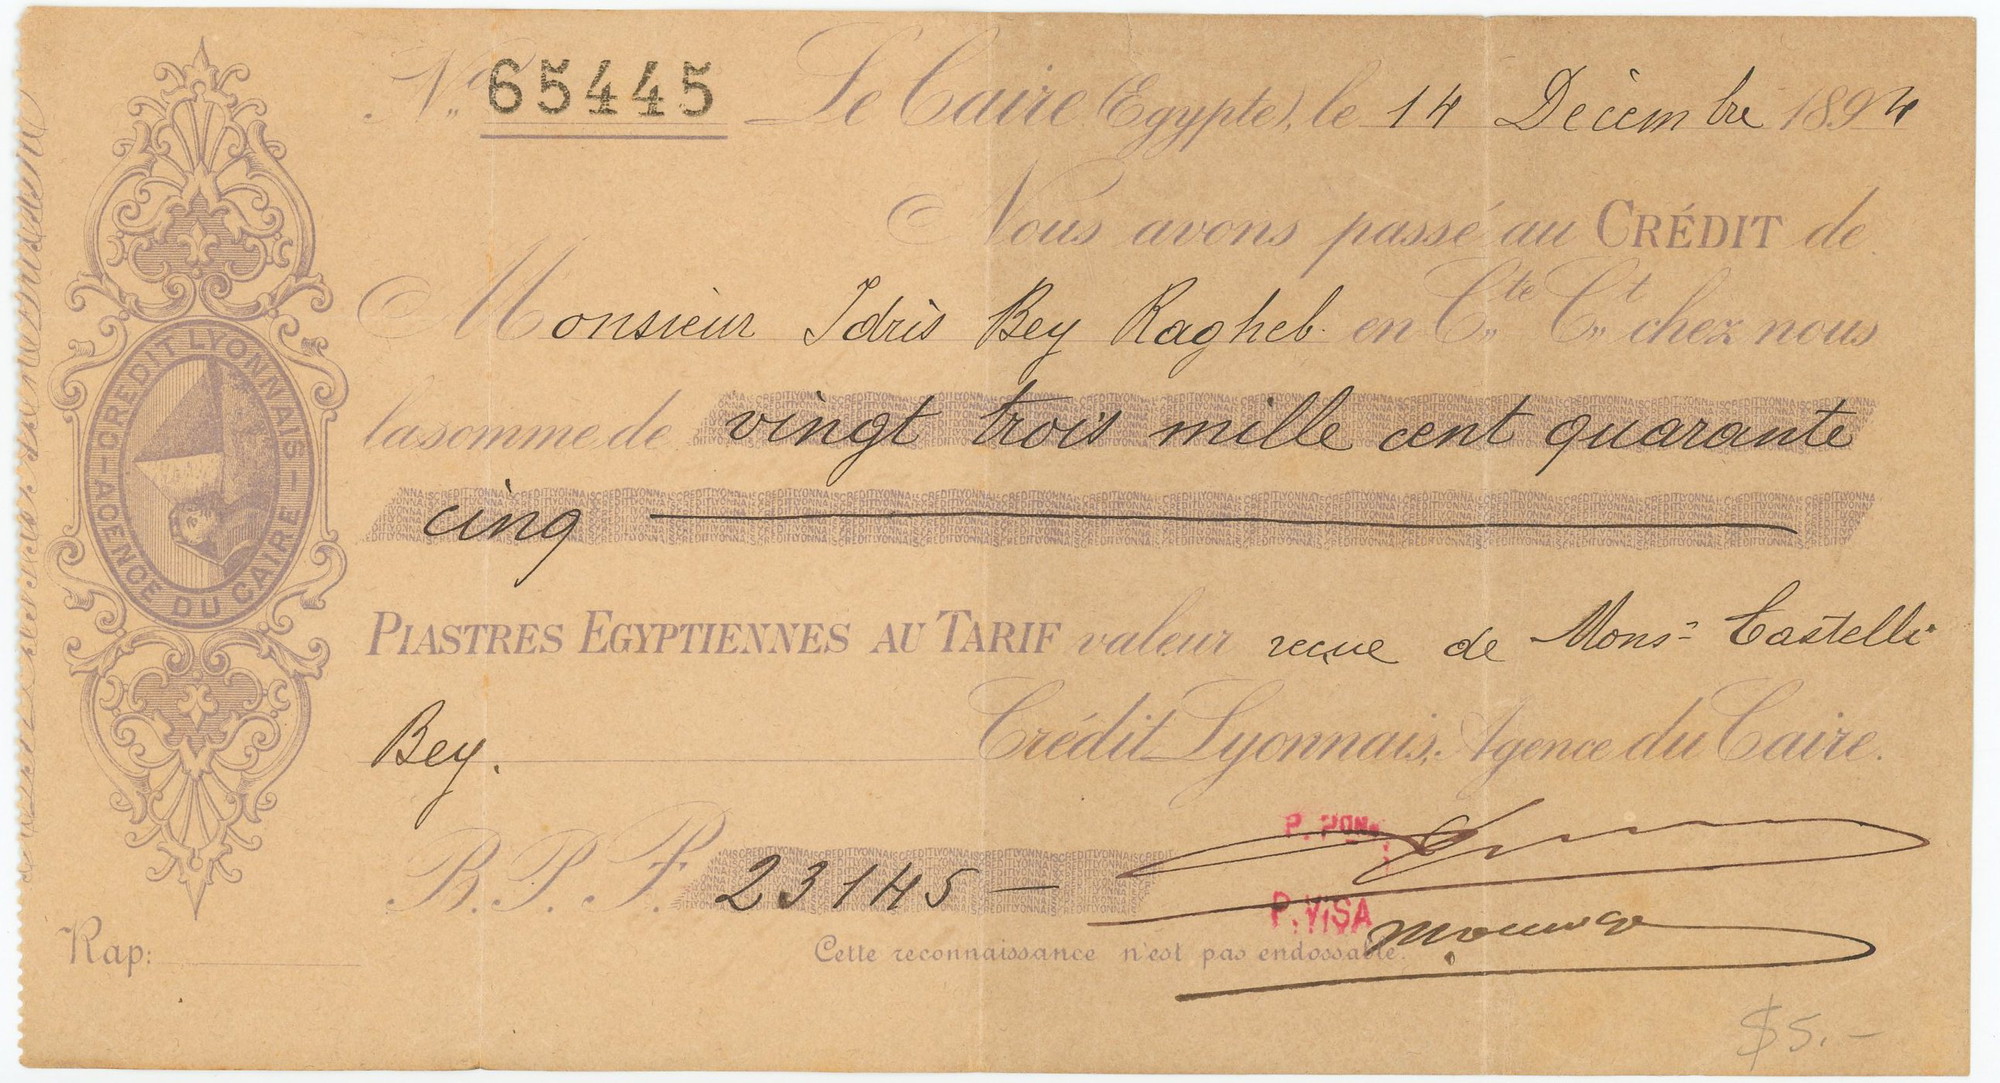 No. 65445 Le Caire (Egypte), le 14 Décembre 1894
Nous avons passé au CRÉDIT de
Monsieur Idris Bey Ragheb en Cte Ct chez nous
la somme de vingt trois mille cent quarante
cinq
PIASTRES EGYPTIENNES AU TARIF valeur reçue de Monsr Castelli
Bey. Crédit Lyonnais, Agence du Caire.
B. P. F. 23145 —
P. PON
P. VISA
Cette reconnaissance n'est pas endossable.
CREDIT LYONNAIS
AGENCE DU CAIRE
Rap:
$5.-